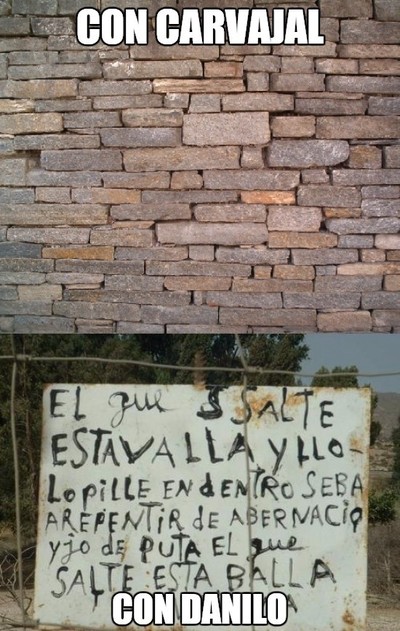 CON CARVAJAL
EL que S SALTE
ESTAVALLA Y LLO-
LO PILLE EN dENTRO SEBA
AREPENTIR de ABERNACIO
yjo de PUTA EL que
SALTE ESTA BALLA
CON DANILO